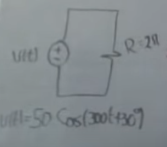 v(t)
R=2Ω
v(t)=50 Cos(300t+30°)